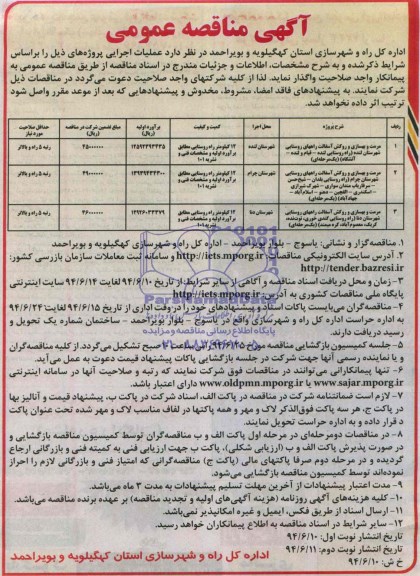 آگهی مناقصه عمومی
اداره کل راه و شهرسازی استان کهگیلویه و بویراحمد در نظر دارد عملیات اجرایی پروژه‌های ذیل را براساس
شرایط ذکرشده و به شرح مشخصات، اطلاعات و جزئیات مندرج در اسناد مناقصه از طریق مناقصه عمومی به
پیمانکار واجد صلاحیت واگذار نماید. لذا از کلیه شرکتهای واجد صلاحیت دعوت می‌گردد در مناقصات ذیل
شرکت نمایند. به پیشنهادهای فاقد امضا، مشروط، مخدوش و پیشنهادهایی که بعد از موعد مقرر واصل شود
ترتیب اثر داده نخواهد شد.
ردیف شرح پروژه محل اجرا کمیت و کیفیت برآورد اولیه (ریال) مبلغ تضمین شرکت در مناقصه (ریال) حداقل صلاحیت مورد نیاز
۱ مرمت و بهسازی و روکش آسفالت راههای روستایی شهرستان لنده شهرستان لنده ۱۲ کیلومتر راه روستایی مطابق برآورد اولیه و مشخصات فنی و نشریه ۱۰۱ رتبه ۵ راه و بالاتر
۲ مرمت و بهسازی و روکش آسفالت راههای روستایی شهرستان چرام شهرستان چرام ۱۲ کیلومتر راه روستایی مطابق برآورد اولیه و مشخصات فنی و نشریه ۱۰۱ رتبه ۵ راه و بالاتر
۳ مرمت و بهسازی و روکش آسفالت راههای روستایی شهرستان دنا شهرستان دنا ۱۲ کیلومتر راه روستایی مطابق برآورد اولیه و مشخصات فنی و نشریه ۱۰۱ رتبه ۵ راه و بالاتر
۱. مناقصه‌گزار و نشانی: یاسوج - بلوار بویراحمد - اداره کل راه و شهرسازی کهگیلویه و بویراحمد
۲. آدرس سایت الکترونیکی مناقصات: http://iets.mporg.ir و سامانه ثبت معاملات سازمان بازرسی کشور:
http://tender.bazresi.ir
۳- زمان و محل دریافت اسناد مناقصه و آگاهی از سایر شرایط: از تاریخ ۹۴/۶/۱۰ لغایت ۹۴/۶/۱۴ سایت اینترنتی
پایگاه ملی مناقصات کشوری به آدرس: http://iets.mporg.ir
۴- مناقصه‌گران می‌بایست پاکات اسناد و پیشنهادهای خود را در وقت اداری از تاریخ ۹۴/۶/۱۵ لغایت ۹۴/۶/۲۴
به اداره حراست اداره کل راه و شهرسازی واقع در یاسوج - بلوار بویراحمد - ساختمان شماره یک تحویل و
رسید دریافت دارند.
۵- جلسه کمیسیون بازگشایی مناقصه مورخ صبح تشکیل می‌گردد. از کلیه مناقصه‌گران
و یا نماینده رسمی آنها جهت شرکت در جلسه بازگشایی پاکات پیشنهاد قیمت دعوت به عمل می‌آید.
۶- تنها پیمانکارانی می‌توانند در مناقصات فوق شرکت نمایند که رتبه و صلاحیت آنها در سامانه اینترنتی
www.sajar.mporg.ir یا www.oldpmn.mporg.ir دارای اعتبار باشد.
۷- لازم است ضمانتنامه شرکت در مناقصه در پاکت الف، اسناد شرکت در پاکت ب، پیشنهاد قیمت و آنالیز بها
در پاکت ج، هر سه پاکت فوق‌الذکر لاک و مهر و همه پاکتها در لفاف مناسب لاک و مهر شده تحت عنوان پاکت
د قرار داده و به اداره حراست تحویل نمایند.
۸- در مناقصات دومرحله‌ای در مرحله اول پاکت الف و ب مناقصه‌گران توسط کمیسیون مناقصه بازگشایی و
در صورت پذیرش پاکت الف و ب (ارزیابی شکلی)، پاکت ب جهت ارزیابی فنی به کمیته فنی و بازرگانی ارجاع
گردیده و در مرحله دوم صرفا پاکتهای مالی (پاکت ج) مناقصه‌گرانی که امتیاز فنی و بازرگانی لازم را احراز
نموده‌اند توسط کمیسیون مناقصه بازگشایی می‌شود.
۹- مدت اعتبار پیشنهادات از آخرین مهلت تسلیم پیشنهادات به مدت ۳ ماه می‌باشد.
۱۰- کلیه هزینه‌های آگهی روزنامه (هزینه آگهی‌های اولیه و تجدید مناقصه) بر عهده برنده مناقصه می‌باشد.
۱۱- ارسال اسناد از طریق فکس، ایمیل و غیره امکانپذیر نمی‌باشد.
۱۲- سایر شرایط در اسناد مناقصه به اطلاع پیمانکاران خواهد رسید.
تاریخ انتشار نوبت اول: ۹۴/۶/۱۰
تاریخ انتشار نوبت دوم: ۹۴/۶/۱۱
خ ش: ۹۴/۶/۱۰
اداره کل راه و شهرسازی کهگیلویه و بویراحمد